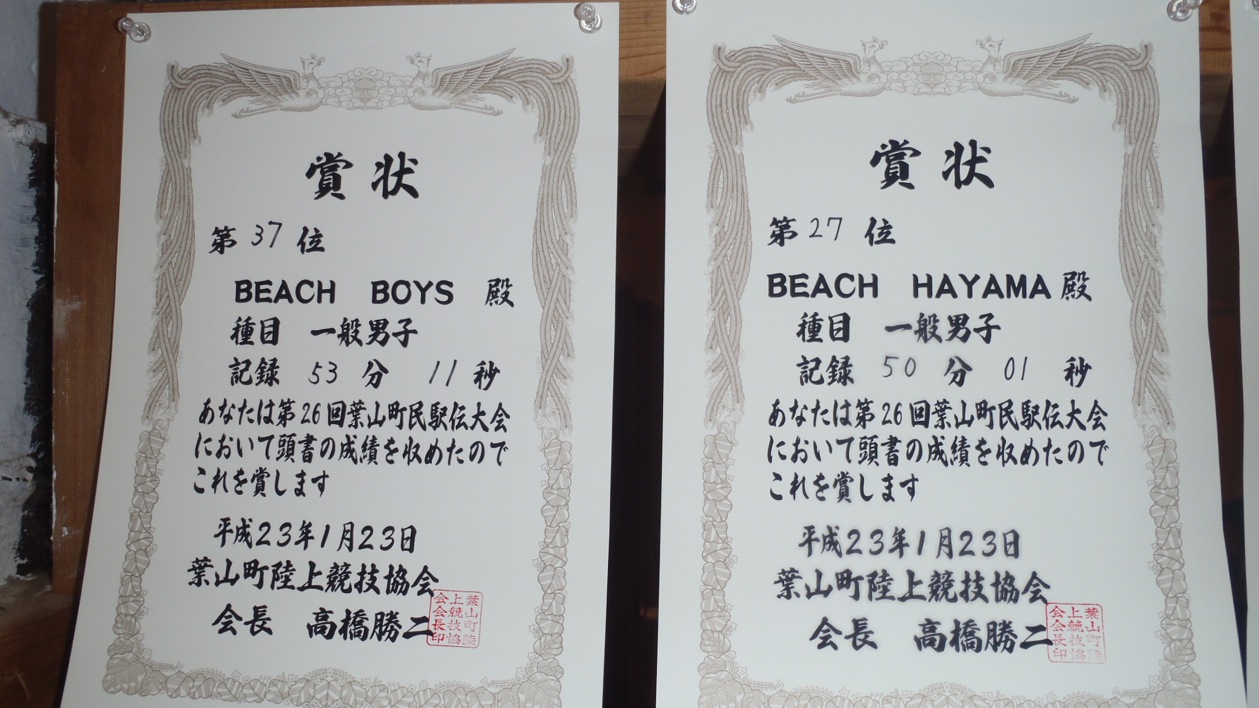 賞状
第 37 位
BEACH BOYS 殿
種目 一般男子
記録 53 分 11 秒
あなたは第26回葉山町民駅伝大会
において頭書の成績を収めたので
これを賞します
平成23年1月23日
葉山町陸上競技協会
会長 高橋勝二
葉山町陸
上競技協
会会長印
賞状
第 27 位
BEACH HAYAMA 殿
種目 一般男子
記録 50 分 01 秒
あなたは第26回葉山町民駅伝大会
において頭書の成績を収めたので
これを賞します
平成23年1月23日
葉山町陸上競技協会
会長 高橋勝二
葉山町陸
上競技協
会会長印